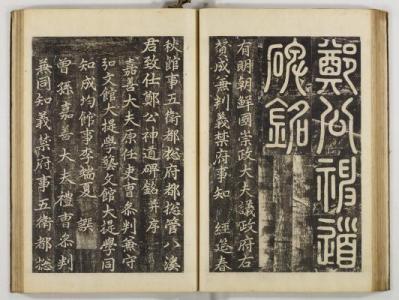 鄭公神道
碑銘
有明朝鮮國崇政大夫議政府右
贊成兼判義禁府事知 經筵春
秋館事五衛都摠府都摠管八溪
君致仕鄭公神道碑銘并序
嘉善大夫原任吏曹參判兼守
弘文館大提學藝文館大提學同
知成均館事李端夏 撰
曾孫嘉善大夫禮曹參判
兼同知義禁府事五衛都摠